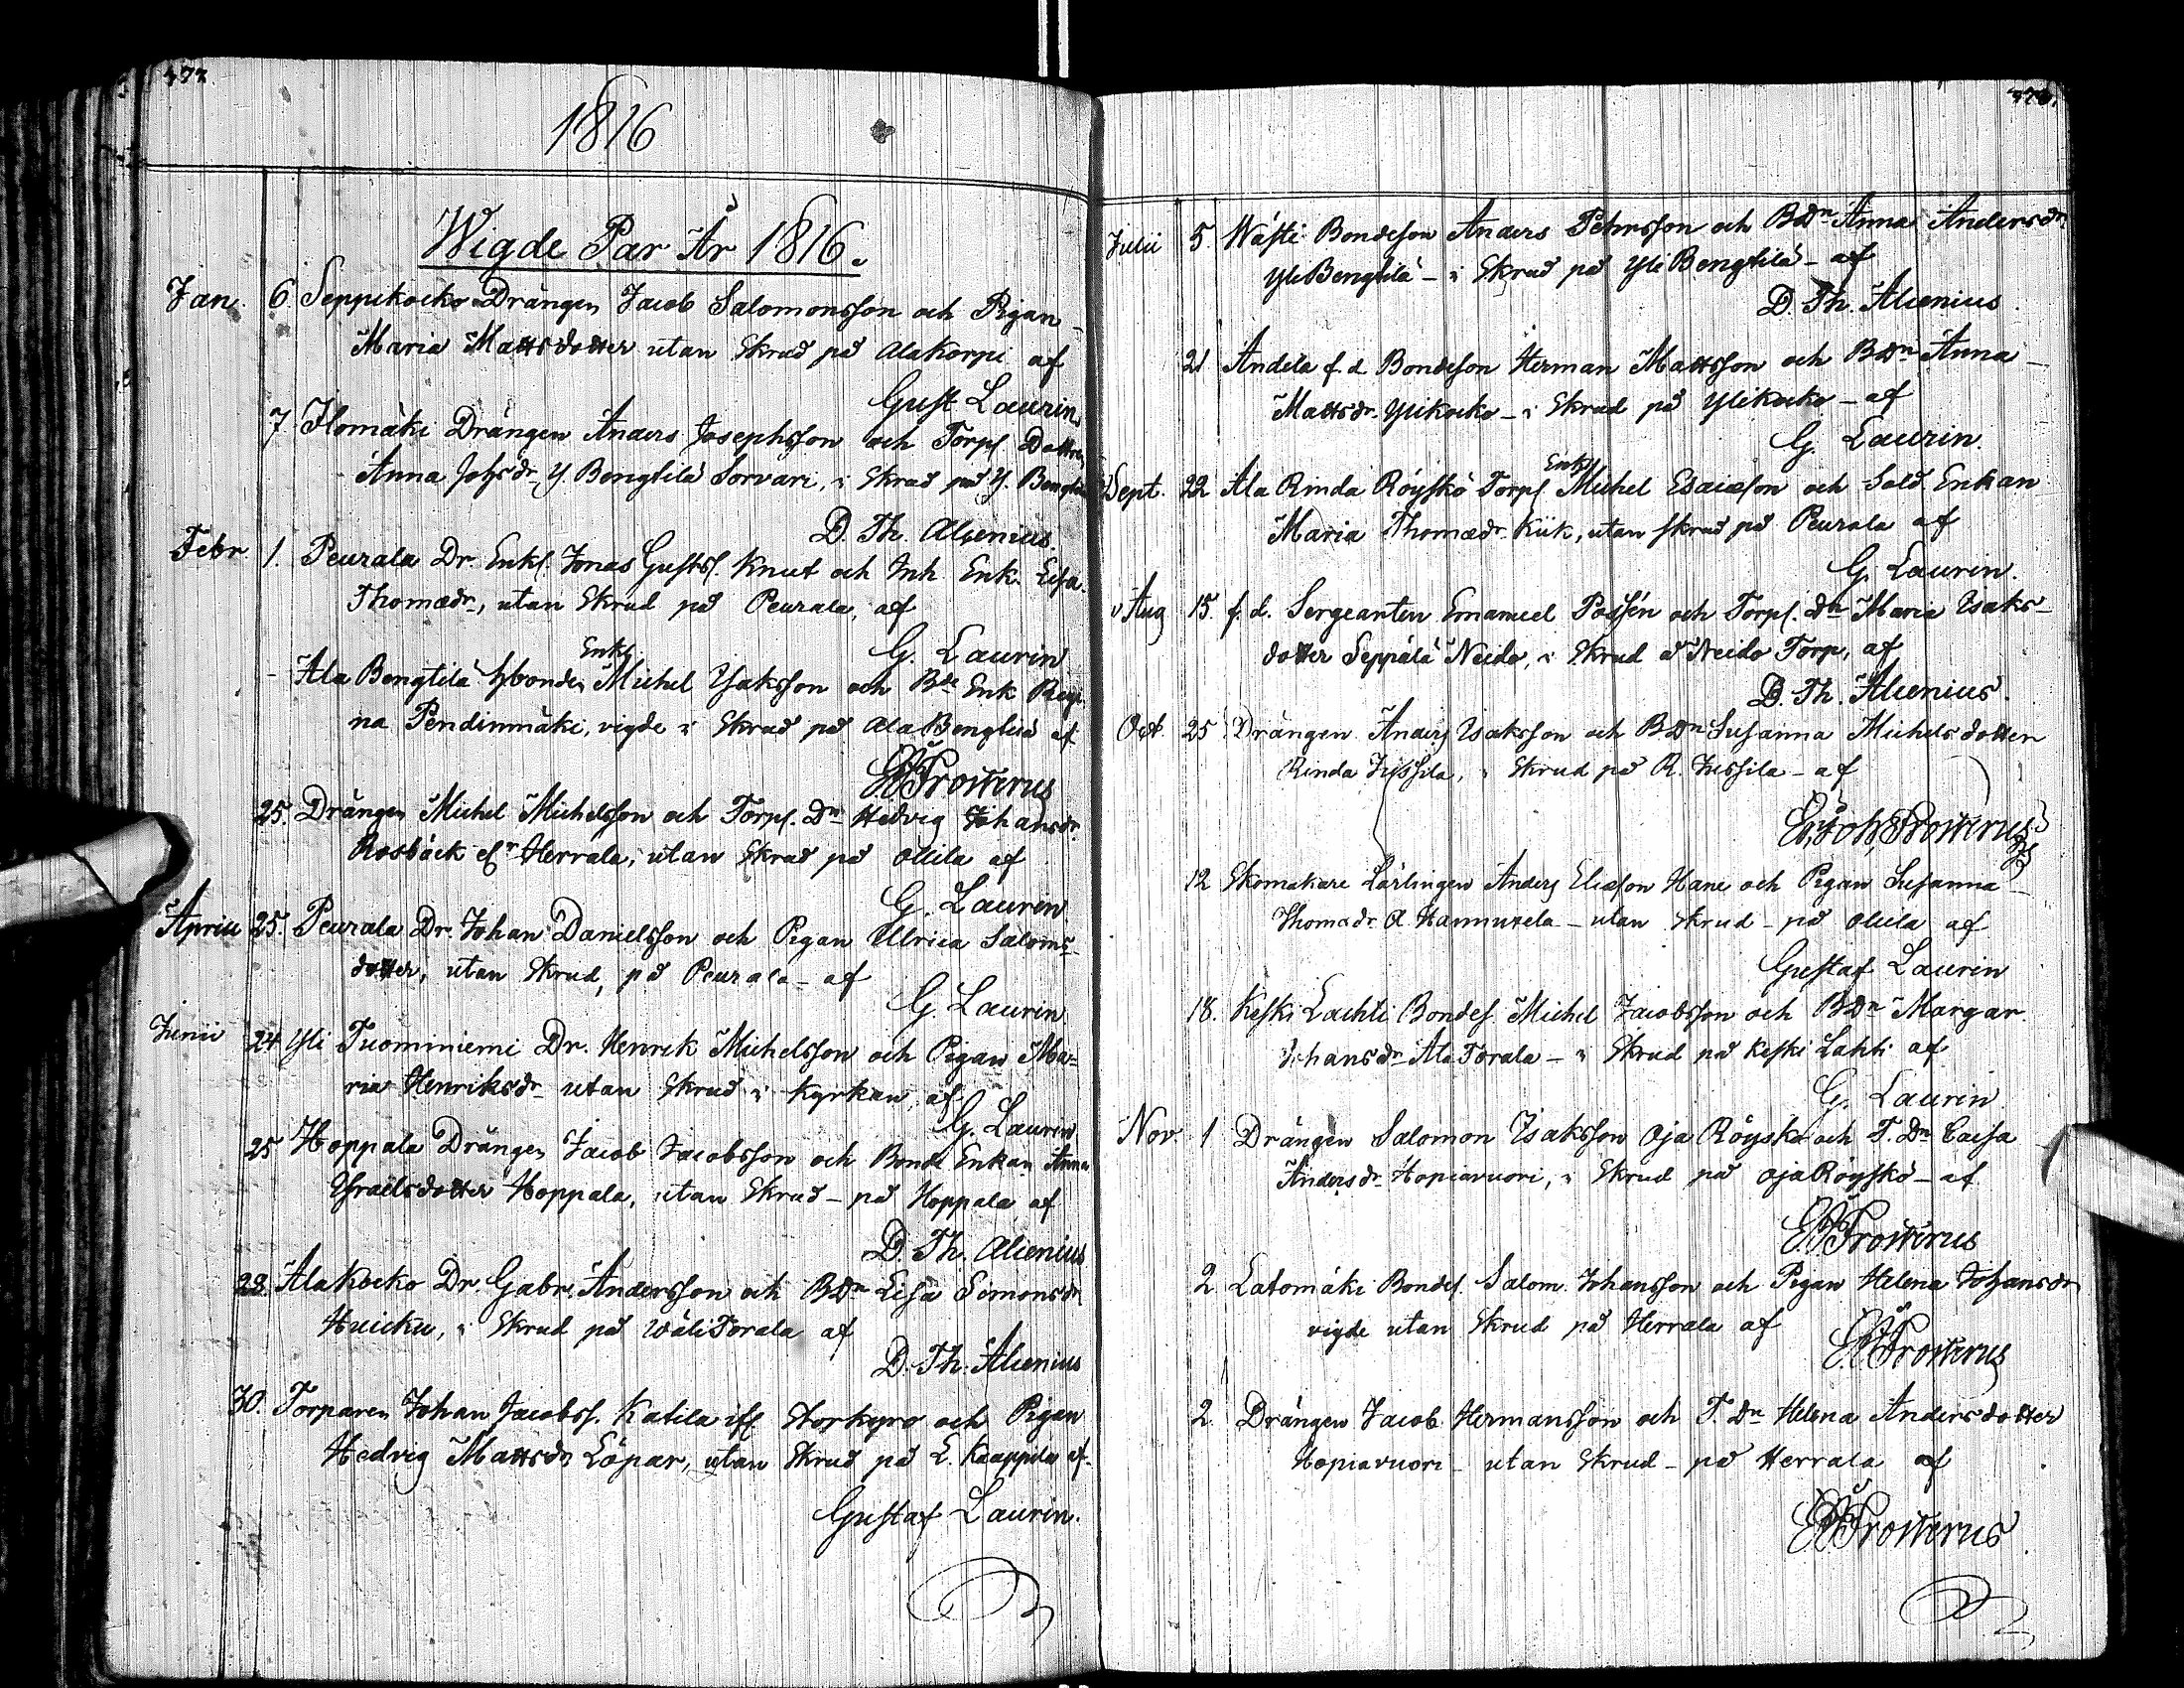 1816
Wigde Par År 1816.
Jan. 6 Seppikocko Drängen Jacob Salomonsson och Pigan
Maria Mattsdotter utan Skrud på Alakorpi af
Gust Laurin
7 Ilomäki Drängen Anders Josephsson och Torp. Dottren
Anna Johsdr. Y. Bengtilä Sorvari, i Skrud på Y. Bengtilä
D. Th. Alcenius.
Febr. 1. Peurala Dr. Enkl. Jonas Gustss. Knut och Inh. Enk. Lisa
Thomædr, utan Skrud på Peurala, af
G. Laurin
- Ala Bengtilä hbonden Enkl. Michel Isaksson och Bde Enk Regi
na Pendinmäki, vigde i Skrud på Ala Bengtilä af
Frosterus
25. Drängen Michel Michelsson och Torp. Dn Hedvig Johansdr
Rosbäck Herrala, utan Skrud på Ollila af
G. Laurin
Aprill 25. Peurala Dr. Johan Danielsson och Pigan Ulrica Saloms
dotter, utan Skrud, på Peurala - af
G. Laurin
Junii 24 Yli Tuominiemi Dr. Henrik Michelsson och Pigan Ma-
ria Henriksdr utan Skrud i Kyrkan, af
G. Laurin
25 Hoppala Drängen Jacob Jacobsson och Bonde Enkan Anna
Israëlsdotter Hoppala, utan Skrud - på Hoppala af
D. Th. Alcenius
28. Alakocko Dr. Gabr. Andersson och BDn Lisa Simonsdr
Huicku, i Skrud på WäliTorala af
D. Th. Alcenius
30. Torparen Johan Jacobss. Katila Storkyro och Pigan
Hedvig Mattsdr Löpar, utan Skrud på L. Kaappila af
Gustaf Laurin.
Julii 5. Wästi Bondeson Anders Pehrsson och BDn Anna Andersdr
YliBengtilä - i Skrud på YliBengtilä - af
D. Th. Alcenius
21 Andela f. d. Bondeson Herman Mattsson och BDn Anna
Mattsdr. Ylikocko - i Skrud på Ylikocko - af
G. Laurin.
Sept. 22 Ala Rinda Röyskö Torp. Enkl. Michel Esaiæson och Sold Enkan
Maria Thomædr. Kiik, utan skrud på Peurala af
G. Laurin.
v Aug 15. f. d. Sergeanten Emanuel Possén och Torp. Dn Maria Isaks-
dotter Seppälä Neido, i Skrud å Neido Torp, af
D. Th. Alcenius.
Oct. 25 Drängen Anders Isaksson och BDn Susanna Michelsdotter
Rinda Jussila, i Skrud på R. Jussila - af
Frosterus
12 Skomakare Lärlingen Anders Eliæson Hane och Pigan Susanna
Thomædr. A. Hannuxela - utan Skrud - på Ollila af
Gustaf Laurin
18. Keski Lachti Bondes. Michel Jacobsson och BDn Margar.
Johansdr AlaTorala - i Skrud på Keski Lahti af
G. Laurin
Nov. 1 Drängen Salomon Isaksson Oja Röyskö och T. Dn Caisa
Andersdr. Hopiavuori, i Skrud på OjaRöyskö - af
Frosterus
2 Latomäki Bondes. Salom. Johansson och Pigan Helena Johansdr
vigde utan Skrud på Herrala af
Frosterus
2. Drängen Jacob Hermansson och T. Dn Helena Andersdotter
Hopiavuori - utan Skrud - på Herrala af
Frosterus